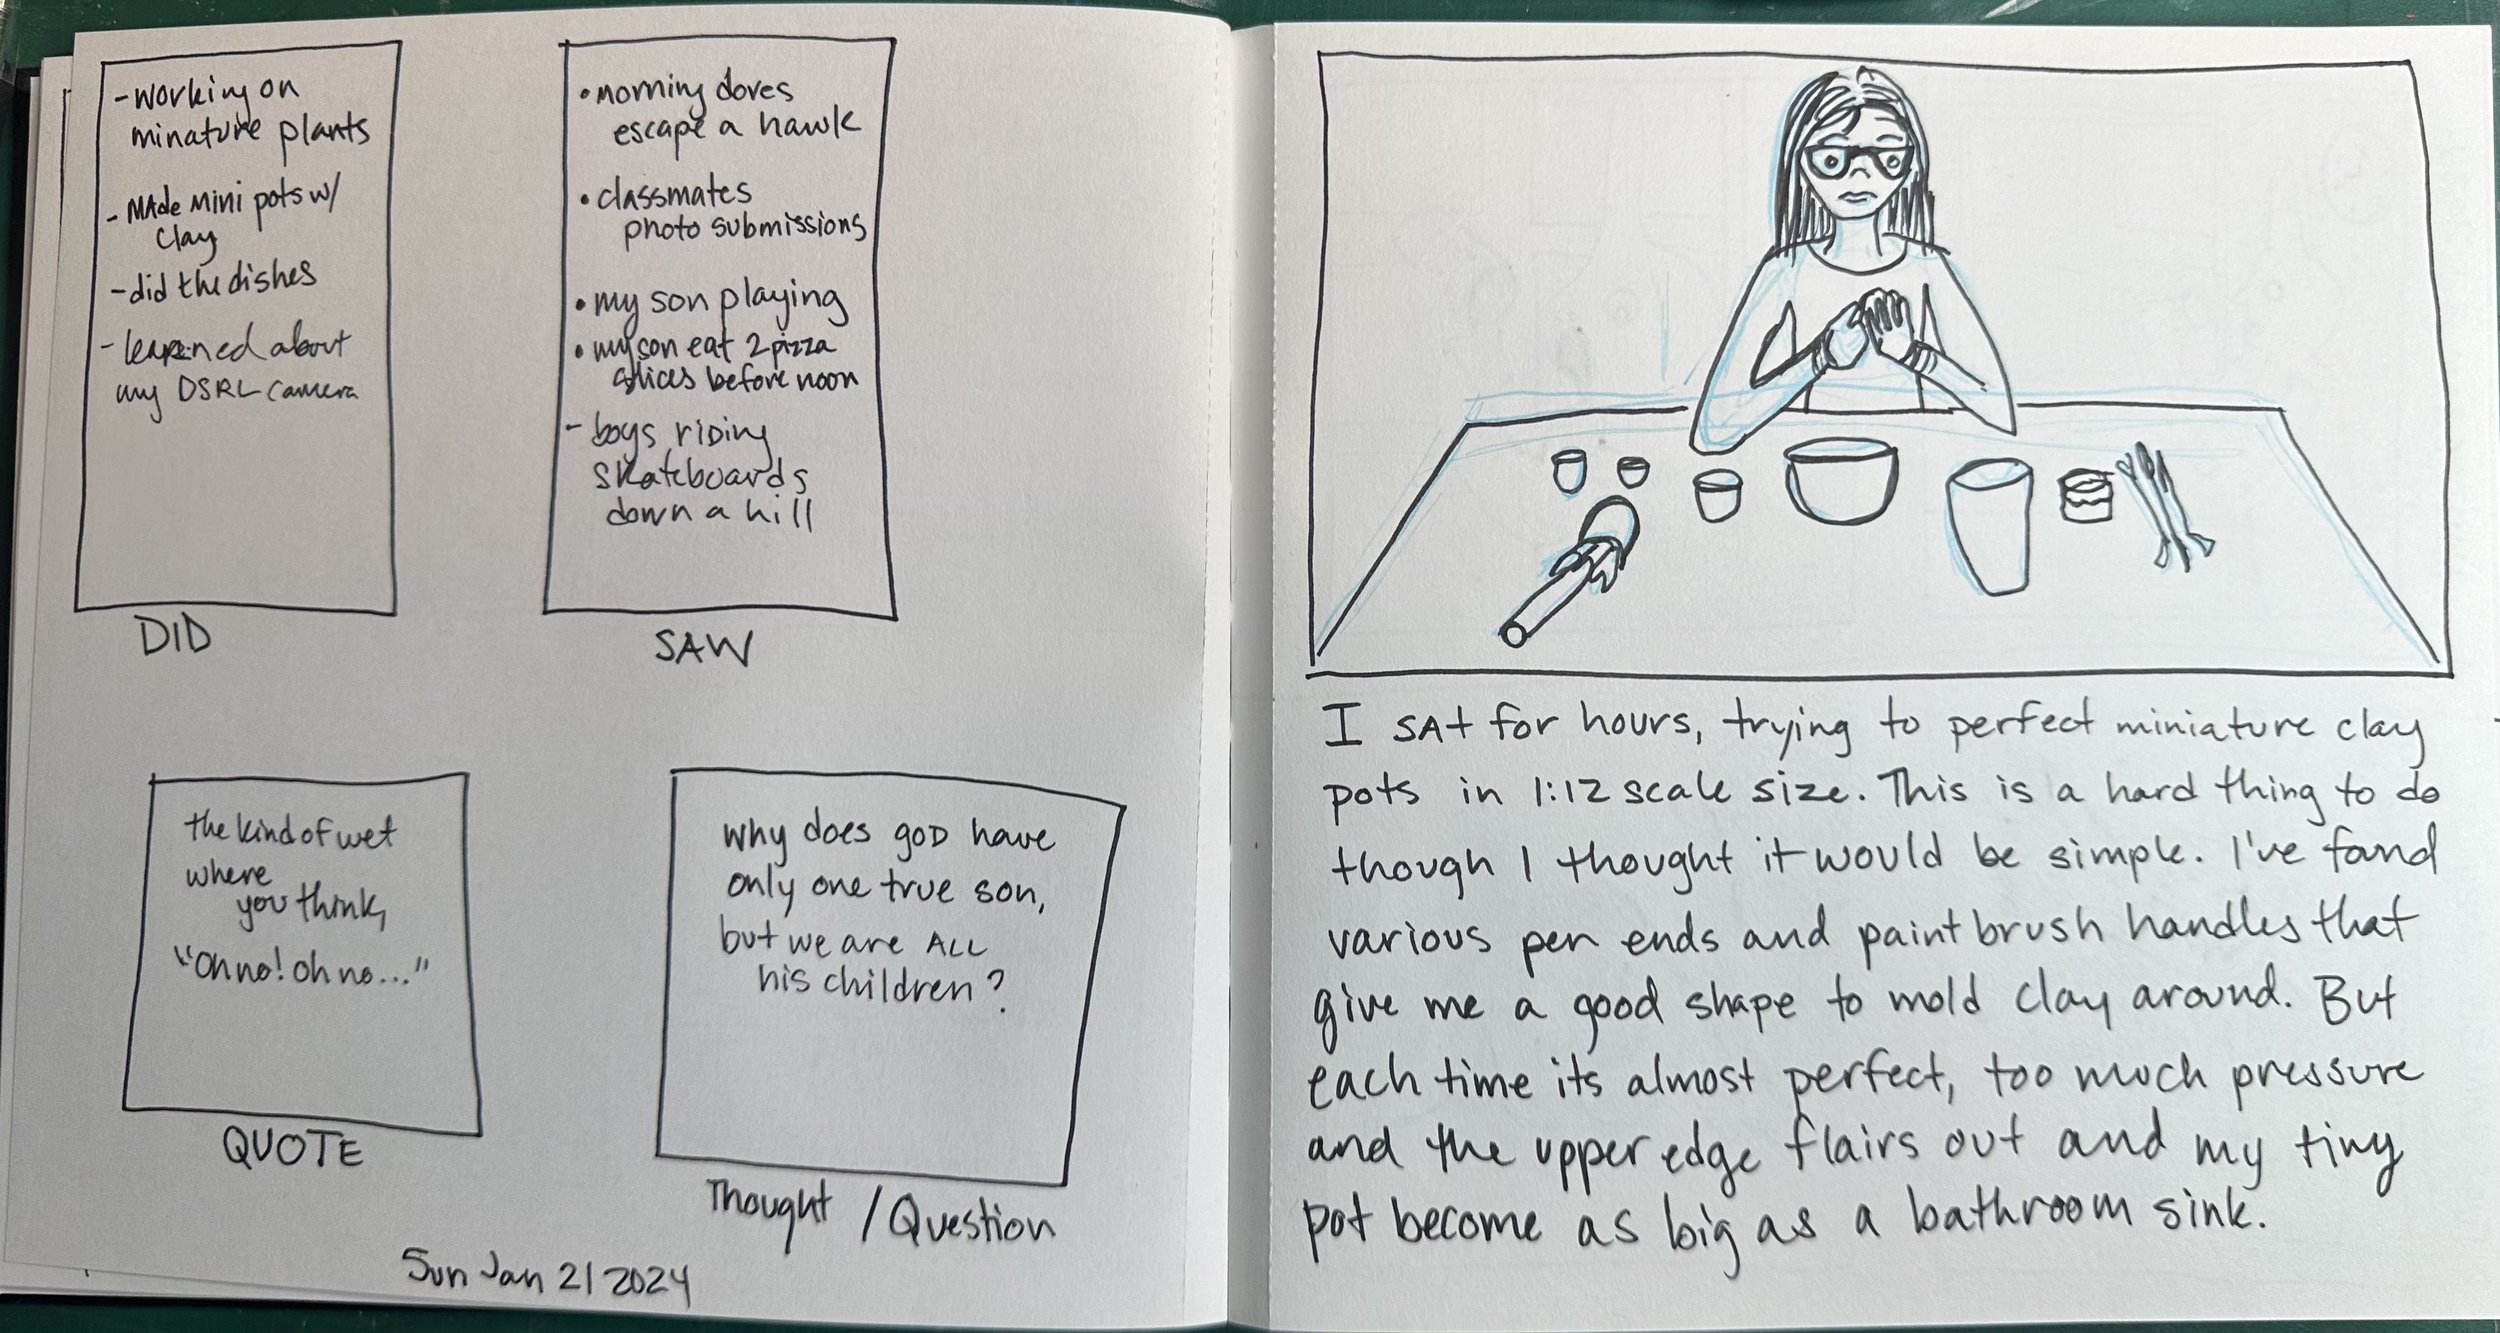 - working on
minature plants
- MAde Mini pots w/
clay
- did the dishes
- learned about
my DSRL camera
DID
• morning doves
escape a hawk
• classmates
photo submissions
• my son playing
• my son eat 2 pizza
slices before noon
- boys riding
skateboards
down a hill
SAW
the kind of wet
where
you think,
"Oh no! oh no..."
QUOTE
why does goD have
only one true son,
but we are ALL
his children?
Thought / Question
Sun Jan 21 2024
I SAt for hours, trying to perfect miniature clay
pots in 1:12 scale size. This is a hard thing to do
though I thought it would be simple. I've fond
various pen ends and paintbrush handles that
give me a good shape to mold clay around. But
each time its almost perfect, too much pressure
and the upper edge flairs out and my tiny
pot become as big as a bathroom sink.